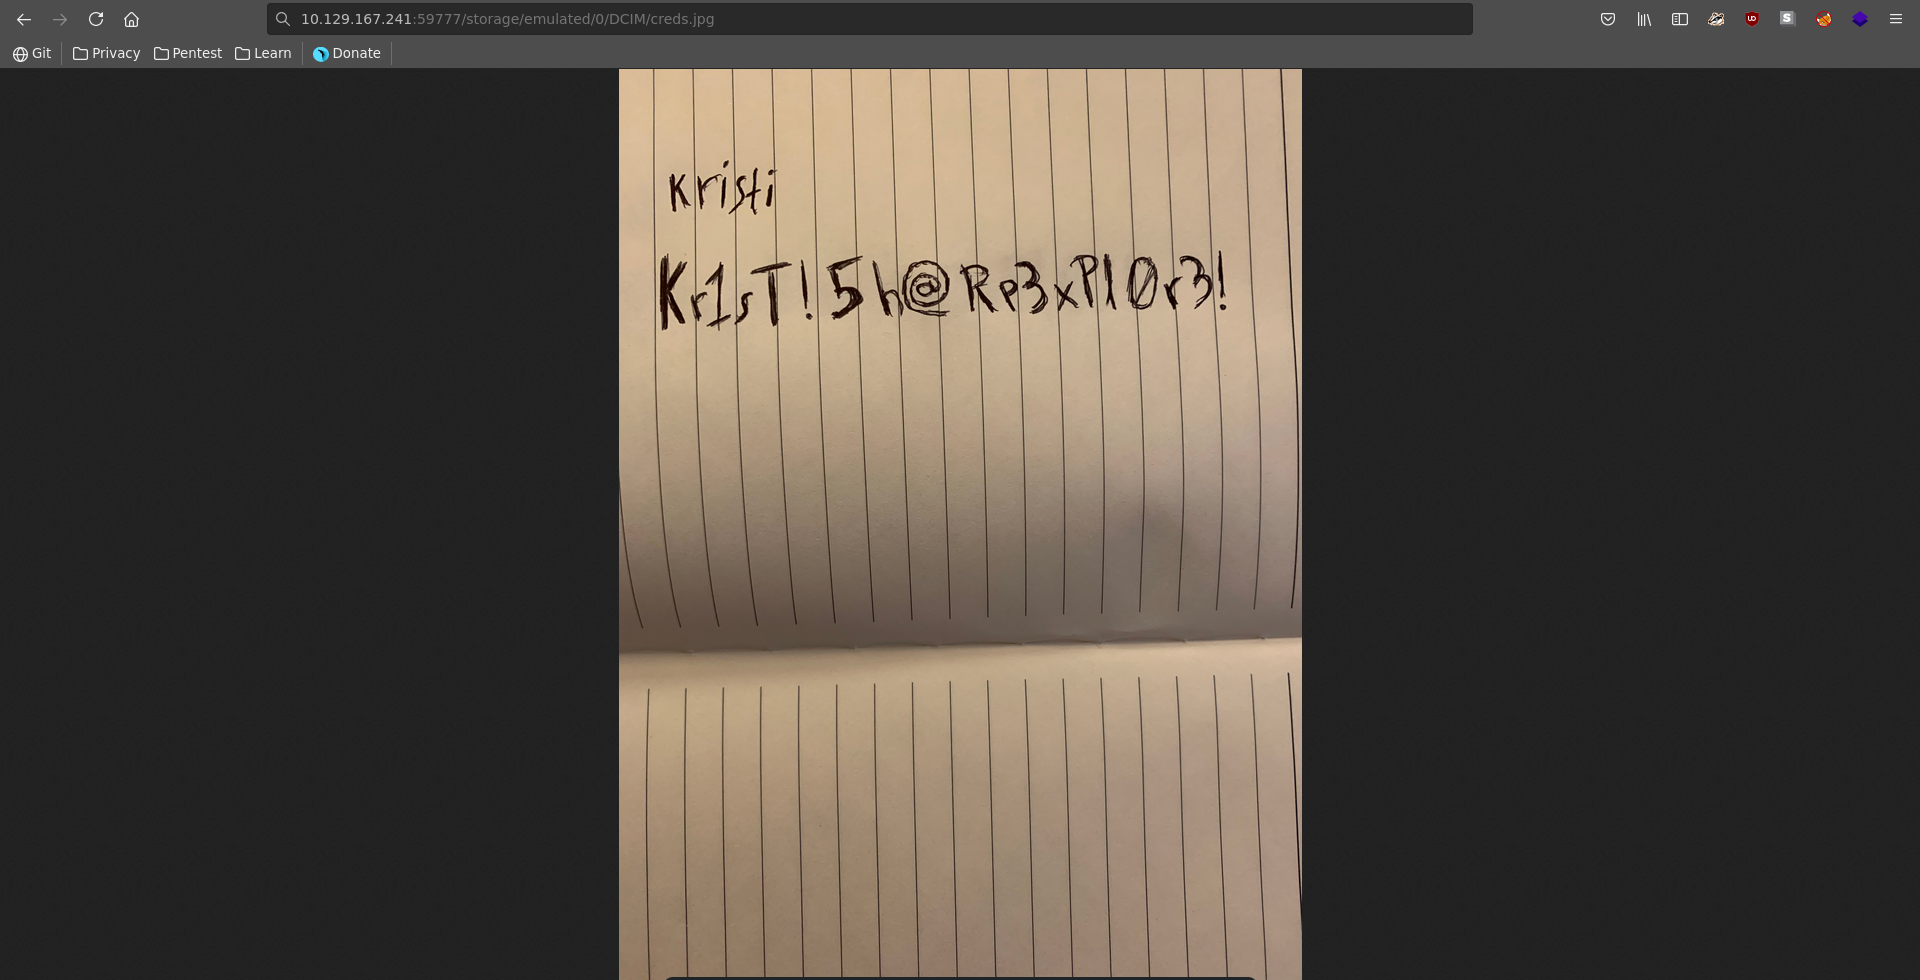 10.129.167.241:59777/storage/emulated/0/DCIM/creds.jpg
Git Privacy Pentest Learn Donate
Kristi
Kr1sT!5h@Rp3xPl0r3!